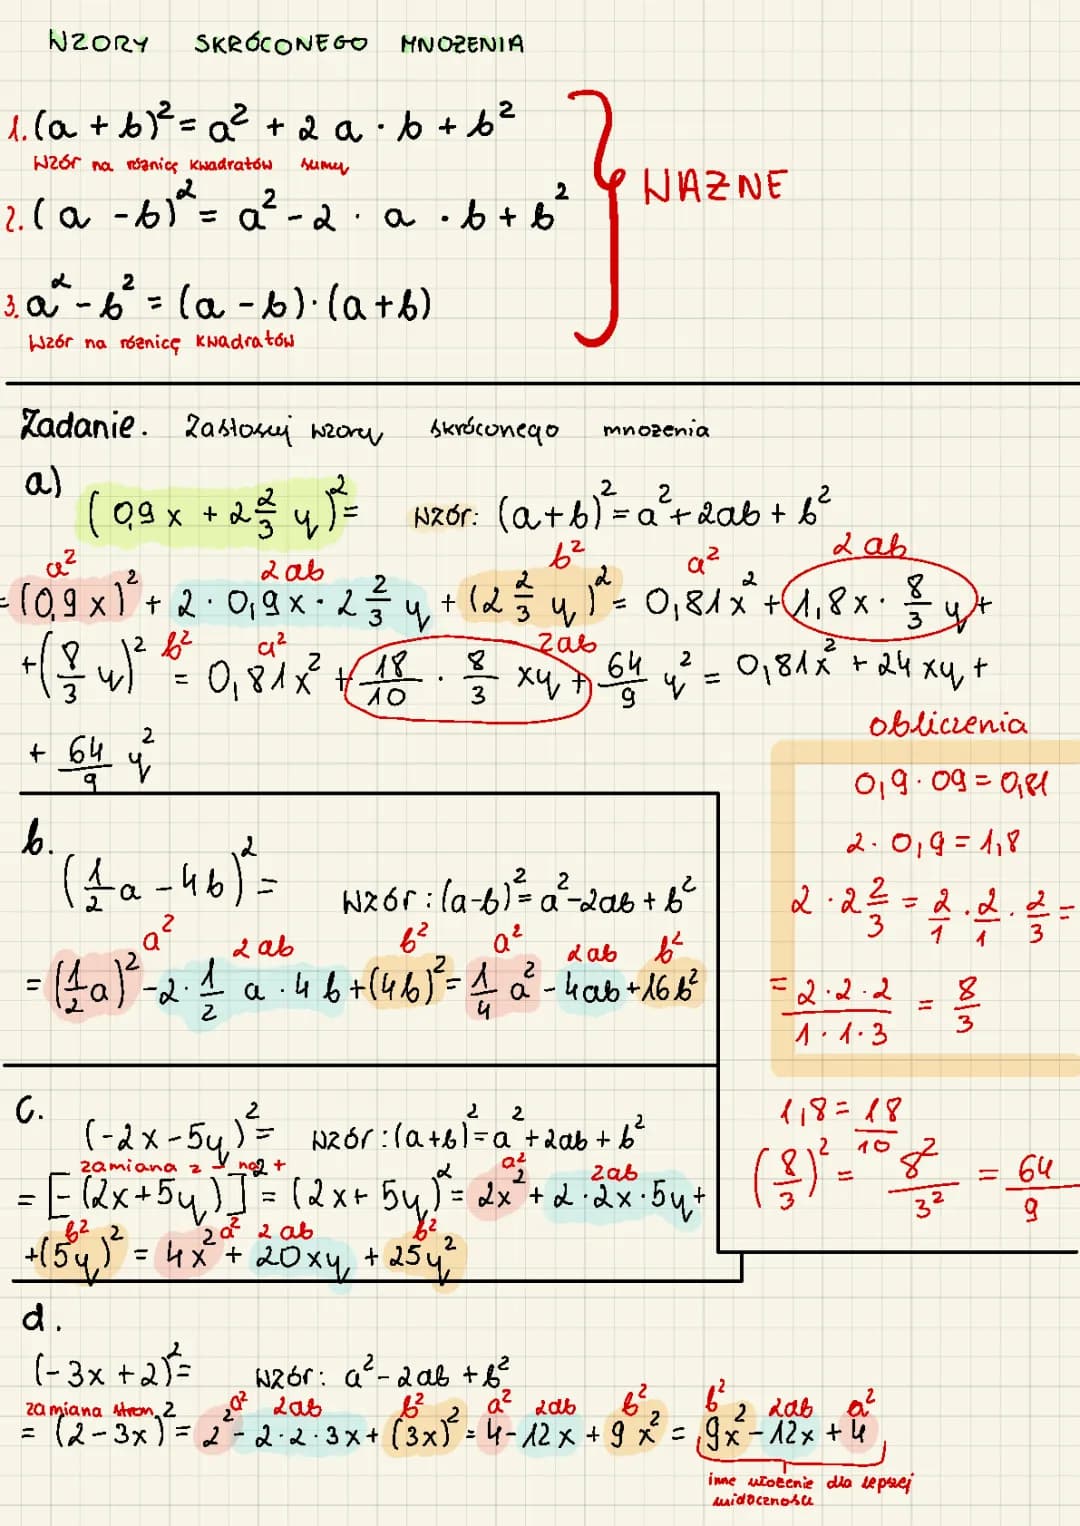 WZORY SKRÓCONEGO MNOŻENIA
1. (a + b)² = a² + 2 a · b + b²
Wzór na różnicę kwadratów sumy
2. (a - b)² = a² - 2 · a · b + b²
WAŻNE
3. a² - b² = (a - b) · (a + b)
Wzór na różnicę kwadratów
Zadanie. Zastosuj wzory skróconego mnożenia
a)
(0,9 x + 2 2/3 y)² = Wzór: (a+b)² = a² + 2ab + b²
a² 2ab b² a² 2ab
= (0,9 x)² + 2 · 0,9 x · 2 2/3 y + (2 2/3 y)² = 0,81x² + 1,8x · 8/3 y +
b² a² 2ab
+ (8/3 y)² = 0,81x² + 18/10 · 8/3 xy + 64/9 y² = 0,81x² + 24 xy +
+ 64/9 y²
obliczenia
0,9 · 09 = 0,81
2 · 0,9 = 1,8
2 · 2 2/3 = 2/1 · 2/1 · 2/3 =
= 2·2·2/1·1·3 = 8/3
1,8 = 18/10
(8/3)² = 8²/3² = 64/9
b.
(1/2 a - 4b)² = Wzór: (a-b)² = a² - 2ab + b²
a² 2ab b² a² 2ab b²
= (1/2 a)² - 2 · 1/2 a · 4b + (4b)² = 1/4 a² - 4ab + 16b²
c.
(-2x - 5y)² = Wzór: (a+b)² = a² + 2ab + b²
zamiana z - na + a² 2ab
= [-(2x+5y)]² = (2x + 5y)² = 2x² + 2 · 2x · 5y +
b² a² 2ab b²
+ (5y)² = 4x² + 20xy + 25y²
d.
(-3x + 2)² = Wzór: a² - 2ab + b²
zamiana stron a² 2ab b² a² 2ab b² b² 2ab a²
= (2 - 3x)² = 2² - 2·2·3x + (3x)² = 4 - 12x + 9x² = 9x² - 12x + 4
inne ułożenie dla lepszej
widoczności